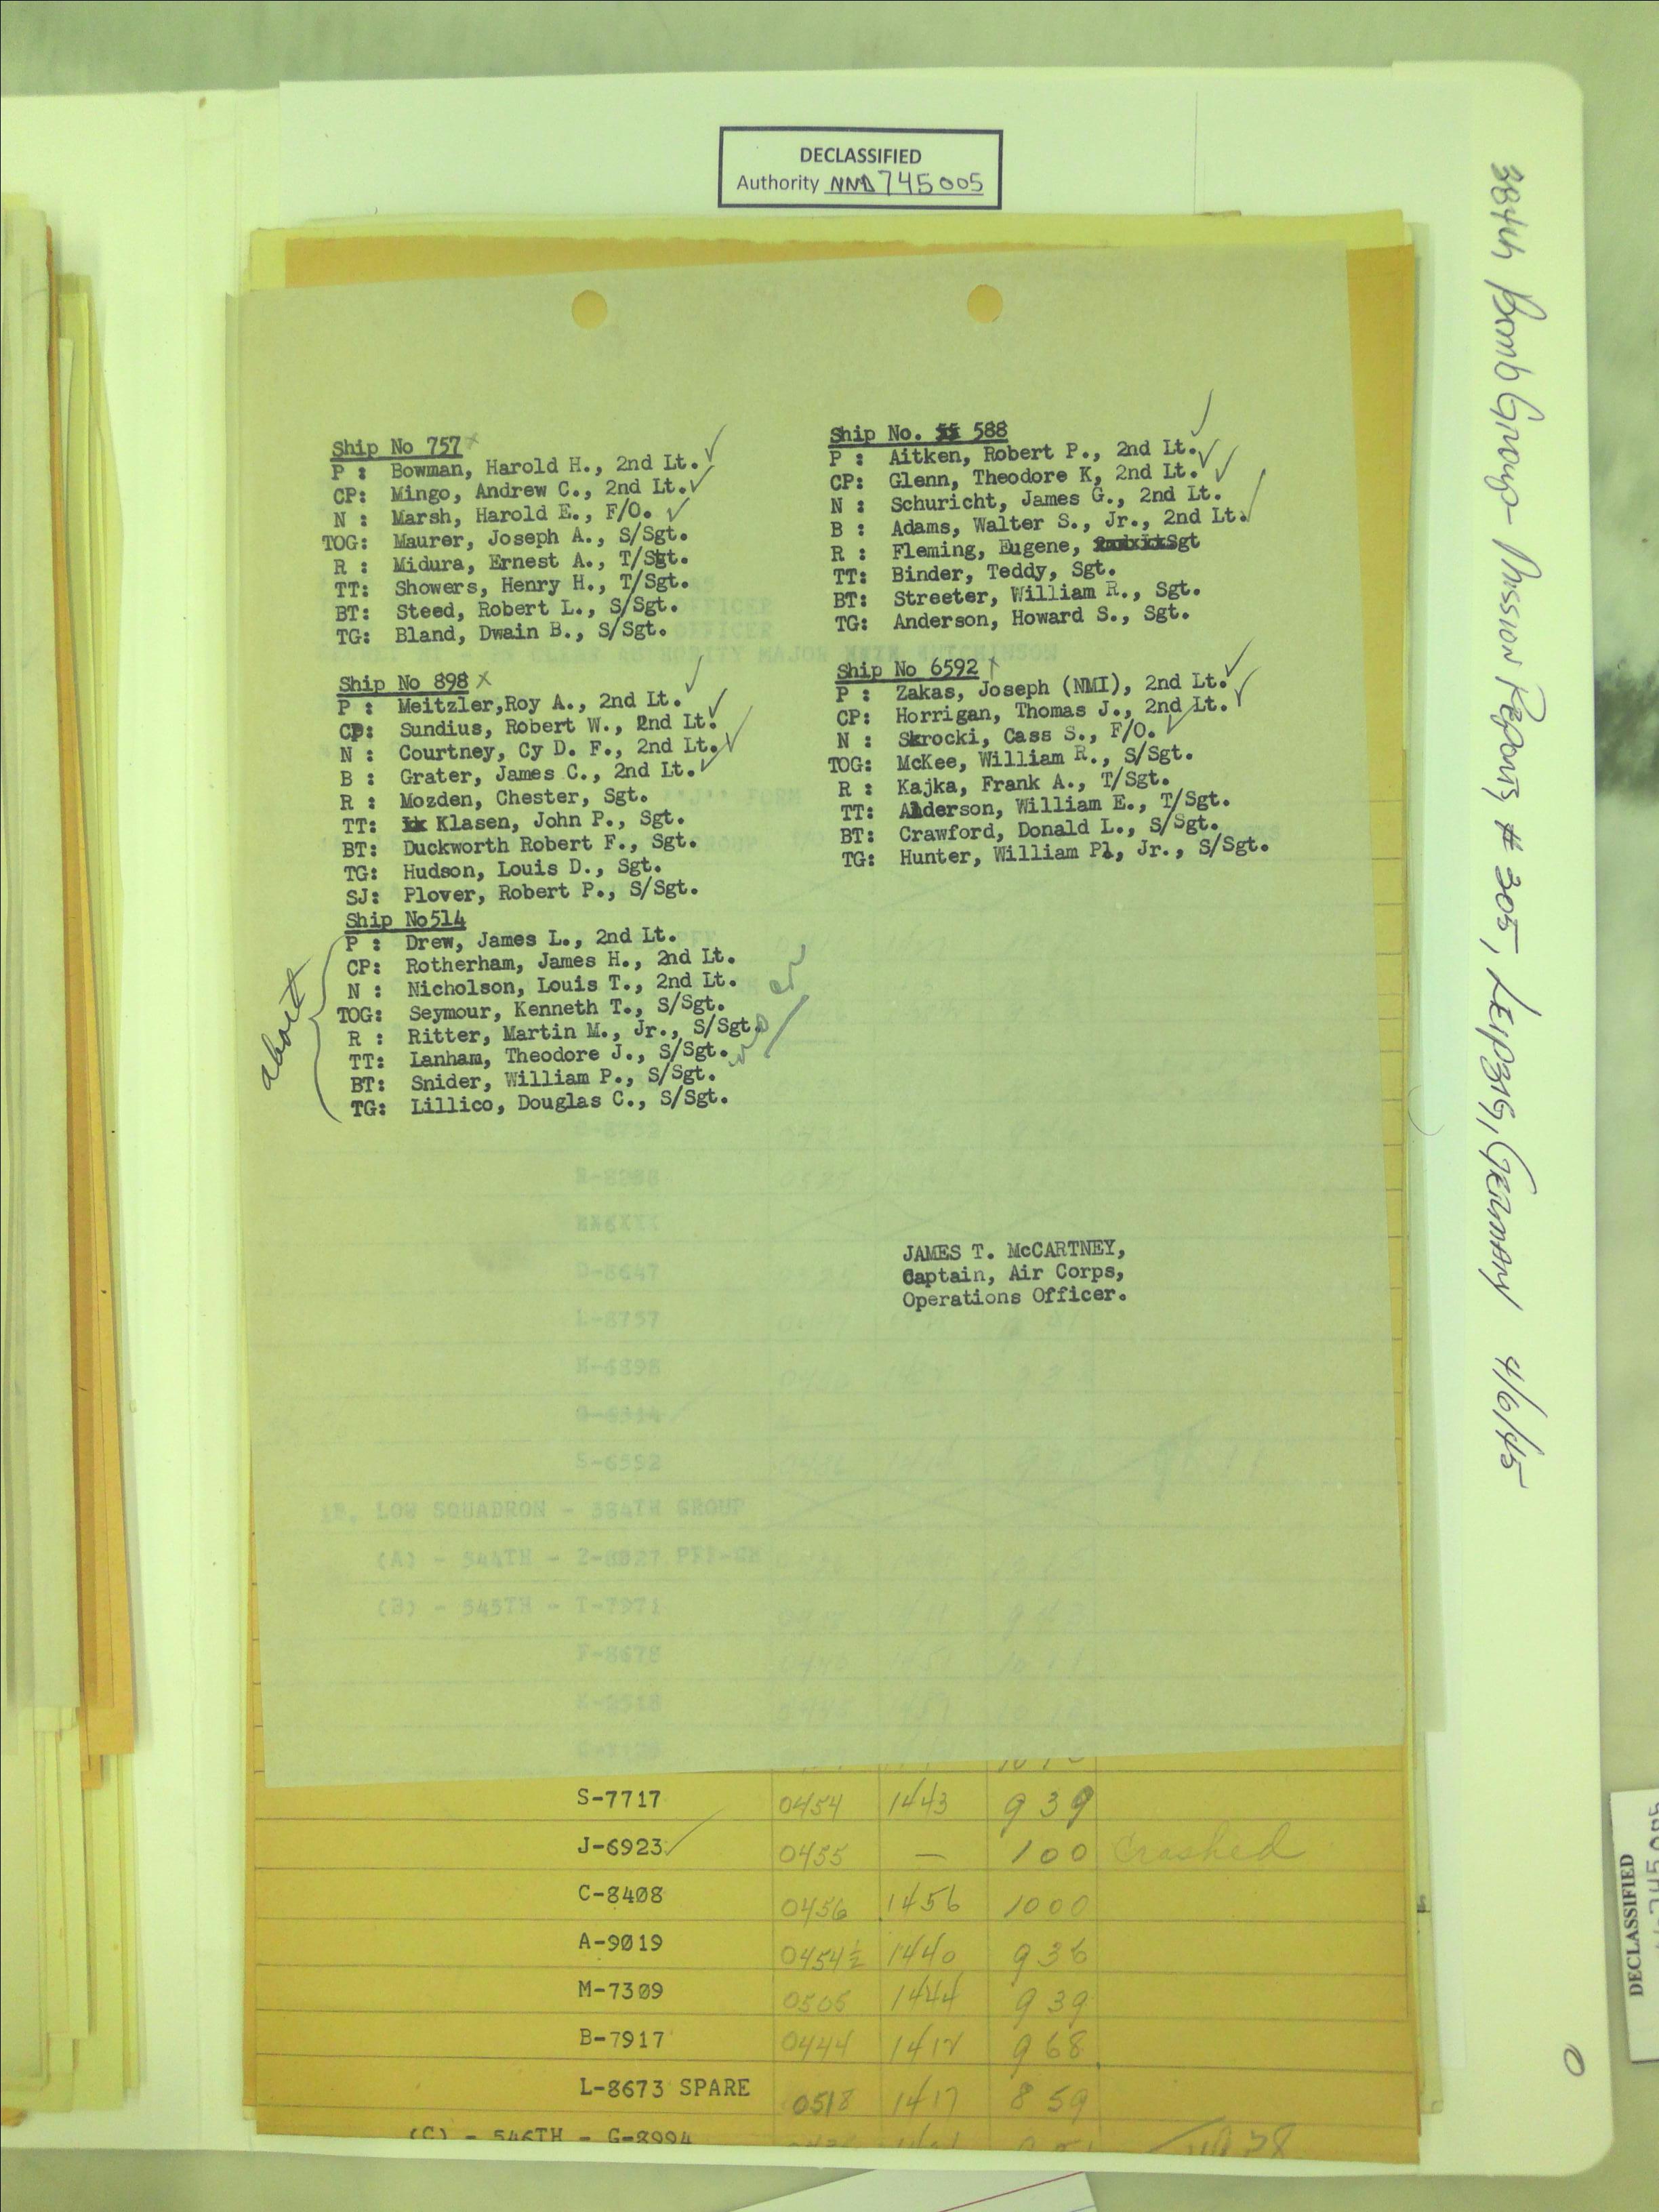 DECLASSIFIED
Authority NND 745005
384th Bomb Group - Mission Reports # 305, Leipzig, Germany 4/6/45
Ship No 757 x
P : Bowman, Harold H., 2nd Lt. ✓
CP: Mingo, Andrew C., 2nd Lt. ✓
N : Marsh, Harold E., F/O. ✓
TOG: Maurer, Joseph A., S/Sgt.
R : Midura, Ernest A., T/Sgt.
TT: Showers, Henry H., T/Sgt.
BT: Steed, Robert L., S/Sgt.
TG: Bland, Dwain B., S/Sgt.
Ship No. 588
P : Aitken, Robert P., 2nd Lt. ✓
CP: Glenn, Theodore K, 2nd Lt. ✓
N : Schuricht, James G., 2nd Lt. ✓
B : Adams, Walter S., Jr., 2nd Lt. ✓
R : Fleming, Eugene, Sgt
TT: Binder, Teddy, Sgt.
BT: Streeter, William R., Sgt.
TG: Anderson, Howard S., Sgt.
Ship No 898 x
P : Meitzler,Roy A., 2nd Lt. ✓
CP: Sundius, Robert W., 2nd Lt. ✓
N : Courtney, Cy D. F., 2nd Lt. ✓
B : Grater, James C., 2nd Lt. ✓
R : Mozden, Chester, Sgt.
TT: Klasen, John P., Sgt.
BT: Duckworth Robert F., Sgt.
TG: Hudson, Louis D., Sgt.
SJ: Plover, Robert P., S/Sgt.
Ship No 6592 x
P : Zakas, Joseph (NMI), 2nd Lt. ✓
CP: Horrigan, Thomas J., 2nd Lt. ✓
N : Skrocki, Cass S., F/O. ✓
TOG: McKee, William R., S/Sgt.
R : Kajka, Frank A., T/Sgt.
TT: Anderson, William E., T/Sgt.
BT: Crawford, Donald L., S/Sgt.
TG: Hunter, William Pl, Jr., S/Sgt.
Ship No514
abort
P : Drew, James L., 2nd Lt.
CP: Rotherham, James H., 2nd Lt.
N : Nicholson, Louis T., 2nd Lt.
TOG: Seymour, Kenneth T., S/Sgt.
R : Ritter, Martin M., Jr., S/Sgt.
TT: Lanham, Theodore J., S/Sgt.
BT: Snider, William P., S/Sgt.
TG: Lillico, Douglas C., S/Sgt.
JAMES T. McCARTNEY,
Captain, Air Corps,
Operations Officer.
L-8757
S-6592
LOW SQUADRON - 384TH GROUP
(B) - 545TH - T-7971
F-8678
S-7717 0454 1443 939
J-6923 ✓ 0455 — 100 Crashed
C-8408 0456 1456 1000
A-9019 0454½ 1440 936
M-7309 0505 1444 939
B-7917 0444 1412 968
L-8673 SPARE 0518 1417 859
(C) - 546TH - G-8994
DECLASSIFIED